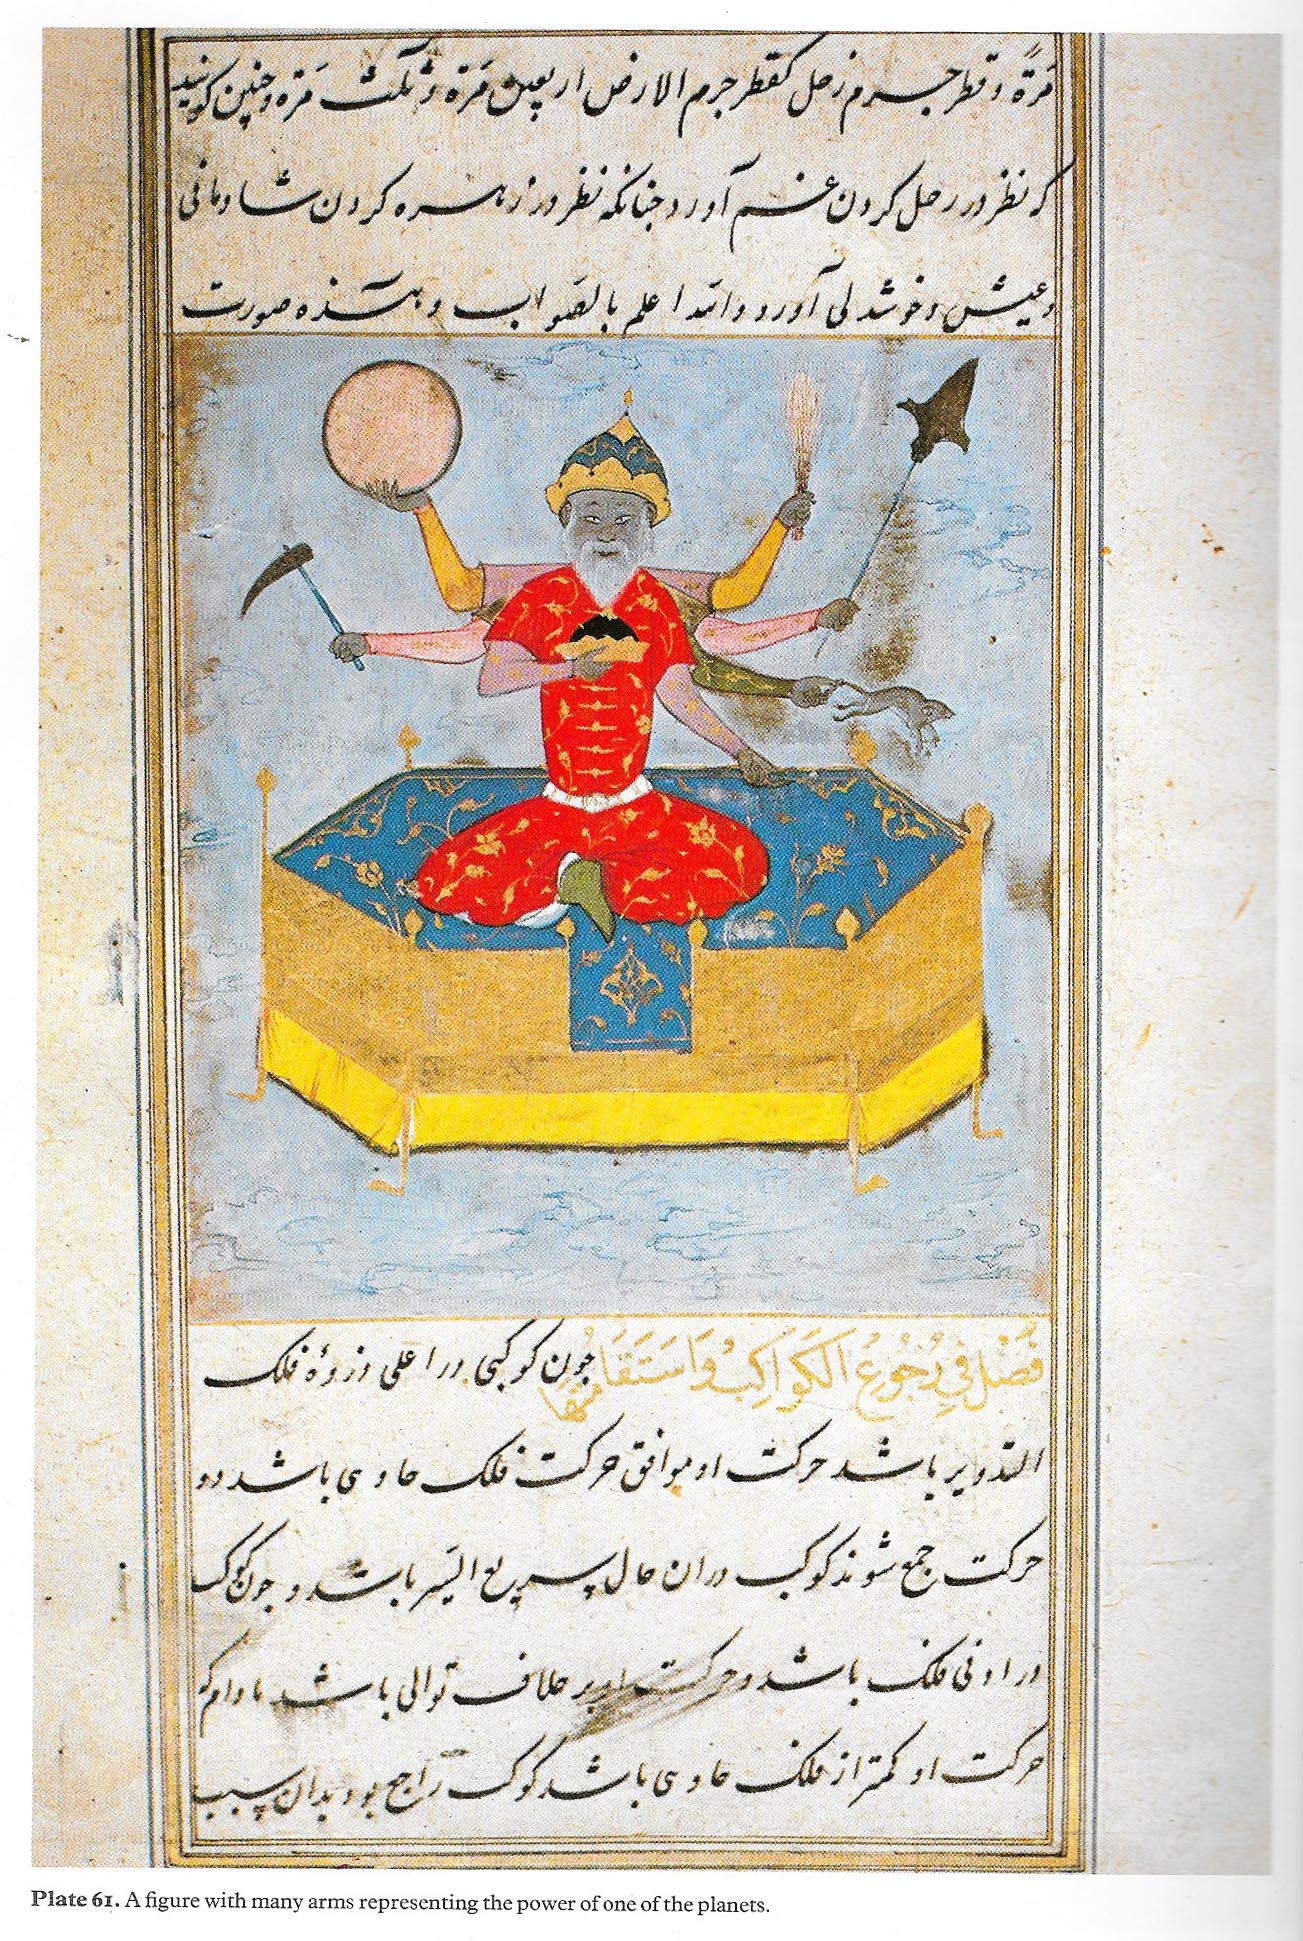 مَرّةً و قطر جرم زحل کقطر جرم الارض اربعین مَرّة و ثلث مَرّة و چنین کویند
که نظر در زحل کردن غم آورد جنانکه نظر در زهره کردن شادمانی
و عیش و خوشدلی آورد و الله اعلم بالصَواب و هذه صورت
فَصْل فی رُجُوعِ الکَواکِبْ وَاسْتَقَامتها جون کوکبی در اعلی ذروهٔ فلک
التدویر باشد حرکت او موافق حرکت فلک حاوی باشد دو
حرکت جمع شوند کوکب دران حال سریع السَیر باشد و جون کوکب
در ادنی فلک باشد و حرکت او بر خلاف توالی باشد مادام که
حرکت او کمتر از فلک حاوی باشد کوکب راجع بود بدان سبب
Plate 61. A figure with many arms representing the power of one of the planets.